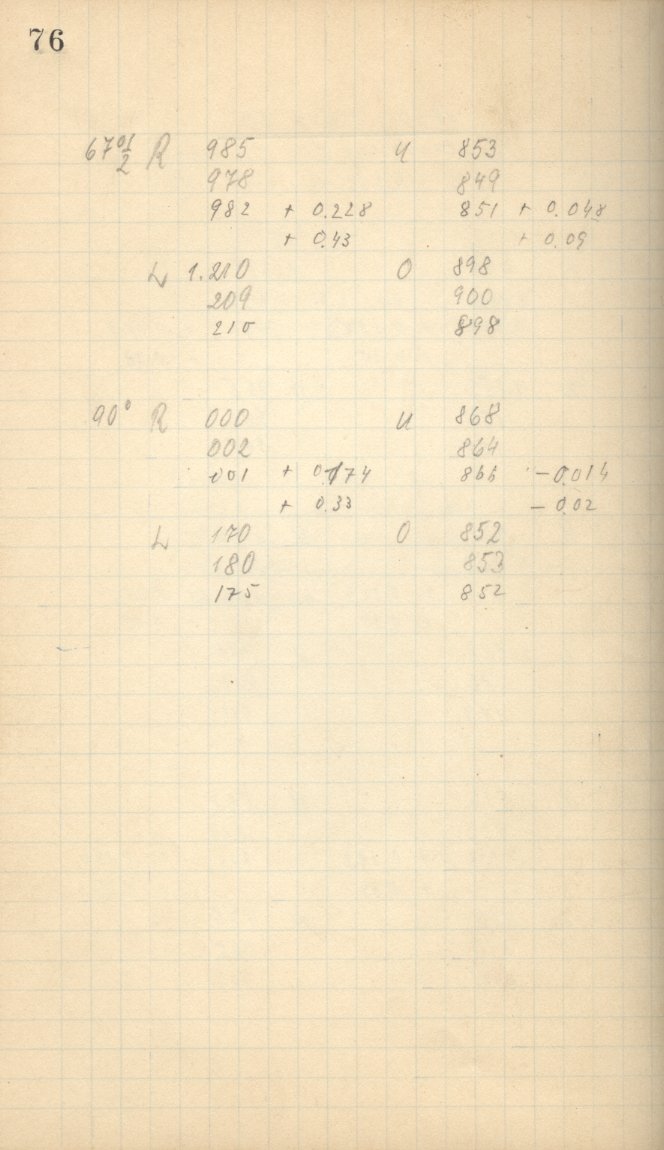 76
67°½ R 985 u 853
978 849
982 + 0.228 851 + 0.048
+ 0.43 + 0.09
L 1.210 O 898
209 900
210 898
90° R 000 u 868
002 864
001 + 0.174 866 - 0.014
+ 0.33 - 0.02
L 170 O 852
180 853
175 852